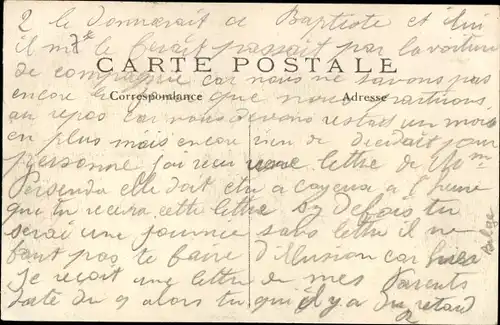 2 le donnerait a Baptiste et lui
il me le ferait passait par la voiture
de compagnie car nous ne savons pas
CARTE POSTALE
encore le jour que nous partirons
Correspondance Adresse
au repos car nous devons rester un mois
en plus mais encore rien de décidait pour
personne j'ai reçu une lettre de Mme
elle doit etre a cayeux a l'heure
que tu recevra cette lettre si des fois tu
serai une journee sans lettre il ne
faut pas te faire d'illusion car hier
Je reçoit une lettre de mes Parents
date du 9 alors tu que il y a du retard